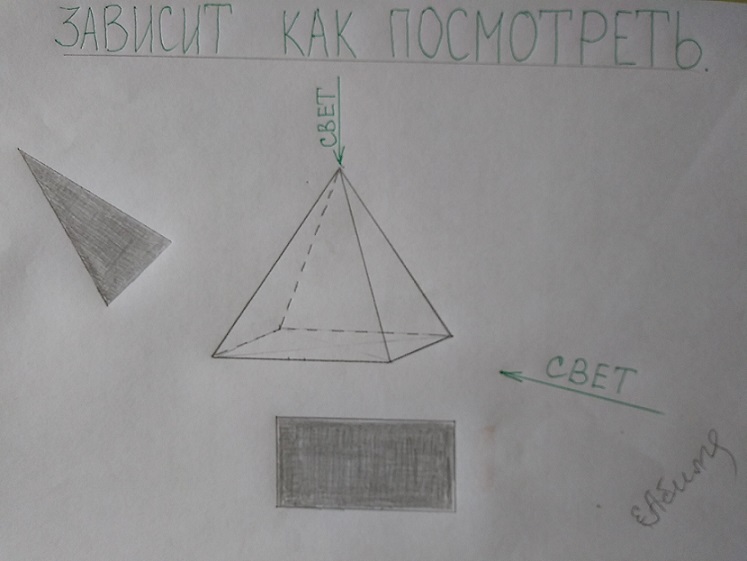 ЗАВИСИТ КАК ПОСМОТРЕТЬ.
СВЕТ
СВЕТ